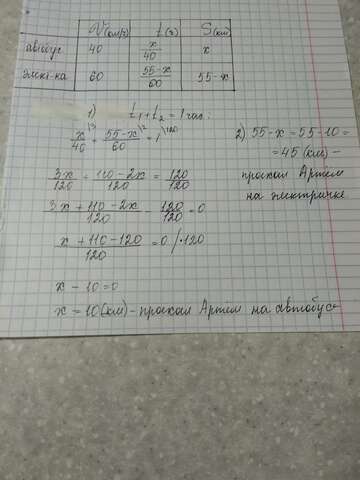 V(км/ч) t(ч) S(км)
автобус 40 x/40 x
элект-ка 60 55-x/60 55-x
1) t₁+t₂ = 1 час.
x/40 \3 + 55-x/60 \2 = 1 \120
3x/120 + 110-2x/120 = 120/120
3x+110-2x/120 - 120/120 = 0
x+110-120/120 = 0 /·120
x - 10 = 0
x = 10(км) - проехал Артём на автобусе
2) 55-x = 55-10 =
= 45 (км) -
проехал Артём
на электричке